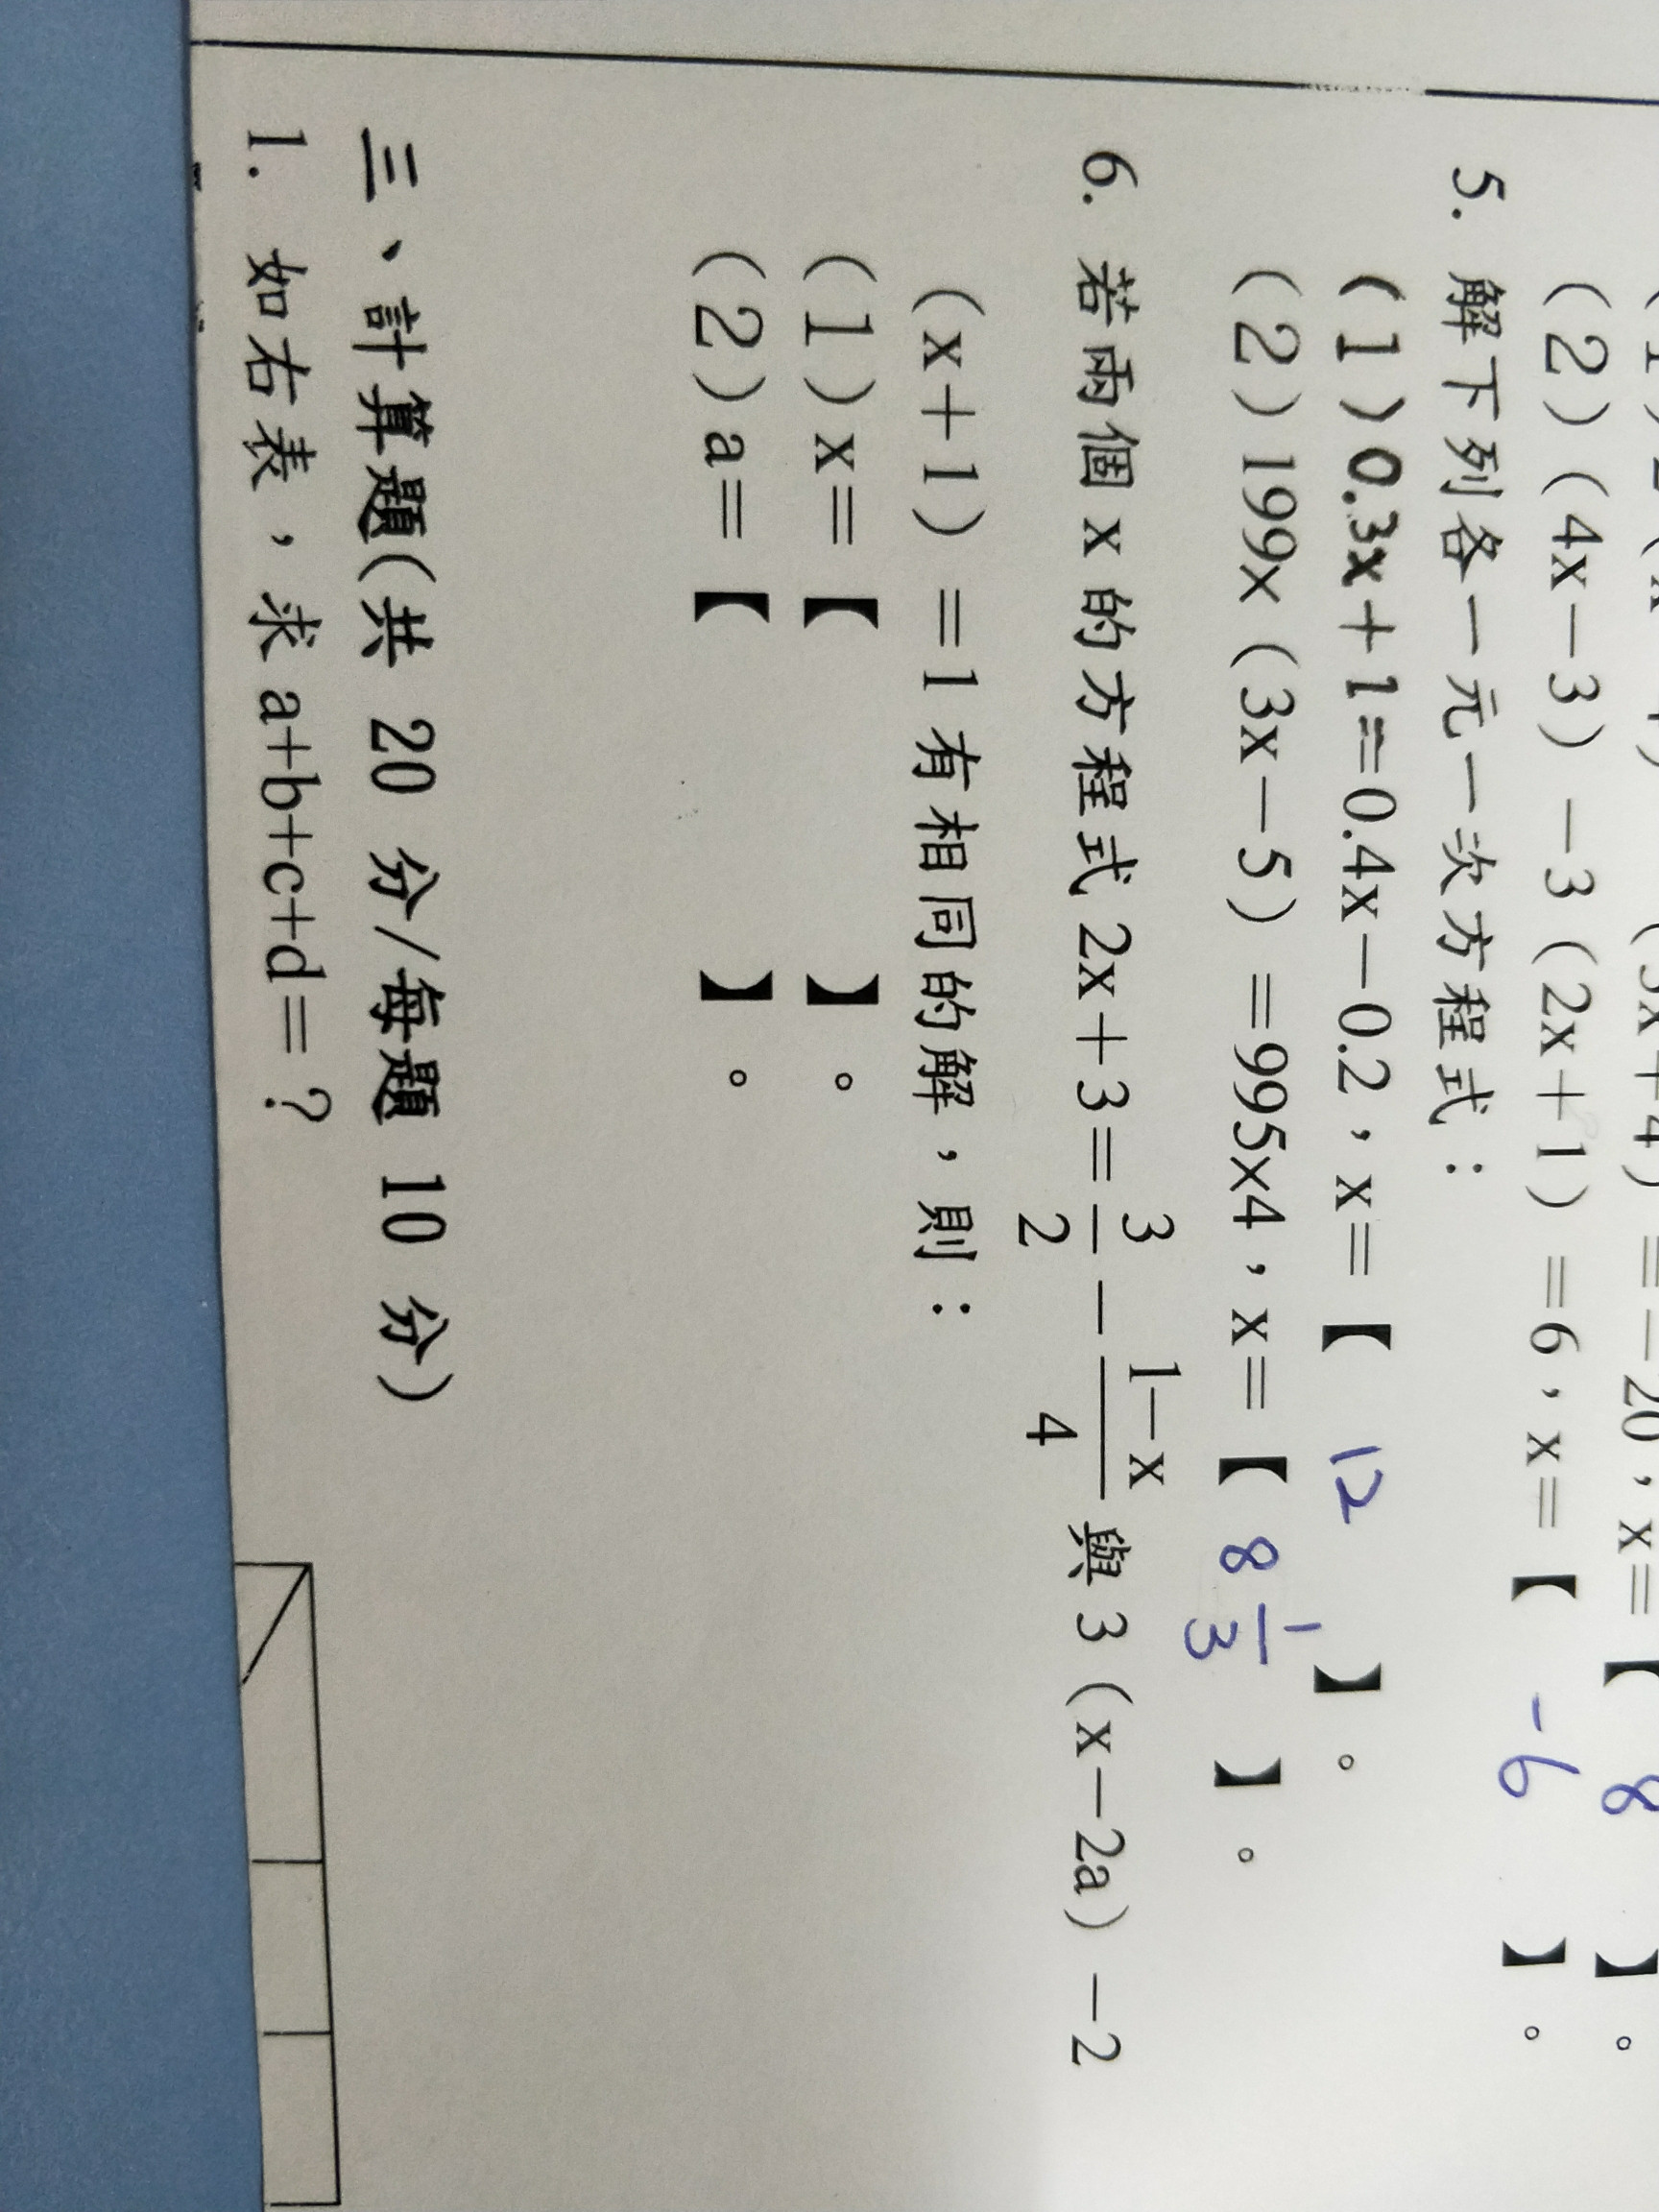 (2)(4x－3)－3(2x＋1)＝6，x＝【 -6 】。
5. 解下列各一元一次方程式：
(1)0.3x＋1＝0.4x－0.2，x＝【 12 】。
(2)199×(3x－5)＝995×4，x＝【 8 1/3 】。
6. 若兩個 x 的方程式 2x＋3＝3/2－(1－x)/4 與 3(x－2a)－2
(x＋1)＝1 有相同的解，則：
(1)x＝【 】。
(2)a＝【 】。
三、計算題(共 20 分/每題 10 分)
1. 如右表，求 a+b+c+d＝？